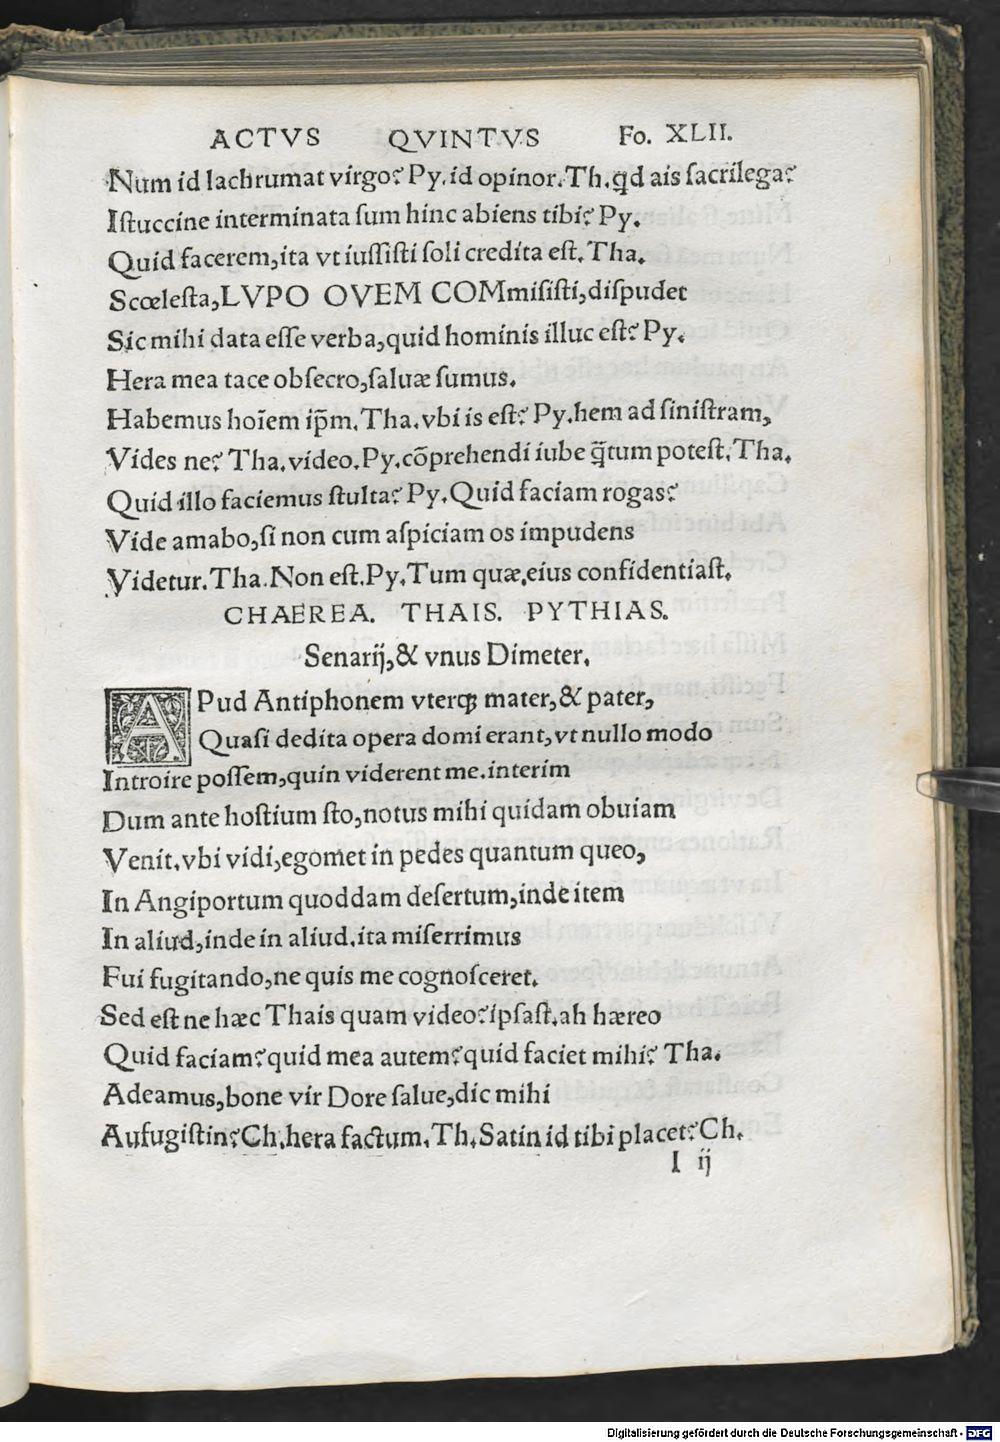 ACTVS QVINTVS Fo. XLII.
Num id lachrumat virgo? Py. id opinor. Th. qd ais ſacrilega?
Iſtuccine interminata ſum hinc abiens tibi? Py.
Quid facerem, ita vt iuſſiſti ſoli credita eſt. Tha.
Scœleſta, LVPO OVEM COMmiſiſti, diſpudet
Sic mihi data eſſe verba, quid hominis illuc eſt? Py.
Hera mea tace obſecro, ſaluæ ſumus.
Habemus hoīem ip̄m. Tha. vbi is eſt? Py. hem ad ſiniſtram,
Vides ne? Tha. video. Py. cōprehendi iube q̄tum poteſt. Tha.
Quid illo faciemus ſtulta? Py. Quid faciam rogas?
Vide amabo, ſi non cum aſpiciam os impudens
Videtur. Tha. Non eſt. Py. Tum quæ, eius confidentiaſt.
CHAEREA. THAIS. PYTHIAS.
Senarij, & vnus Dimeter.
APud Antiphonem vterq; mater, & pater,
Quaſi dedita opera domi erant, vt nullo modo
Introire poſſem, quin viderent me. interim
Dum ante hoſtium ſto, notus mihi quidam obuiam
Venit. vbi vidi, egomet in pedes quantum queo,
In Angiportum quoddam deſertum, inde item
In aliud, inde in aliud. ita miſerrimus
Fui fugitando, ne quis me cognoſceret.
Sed eſt ne hæc Thais quam video? ipſaſt. ah hæreo
Quid faciam? quid mea autem? quid faciet mihi? Tha.
Adeamus, bone vir Dore ſalue, dic mihi
Aufugiſtin? Ch. hera factum. Th. Satin id tibi placet? Ch.
I ij
Digitalisierung gefördert durch die Deutsche Forschungsgemeinschaft - DFG